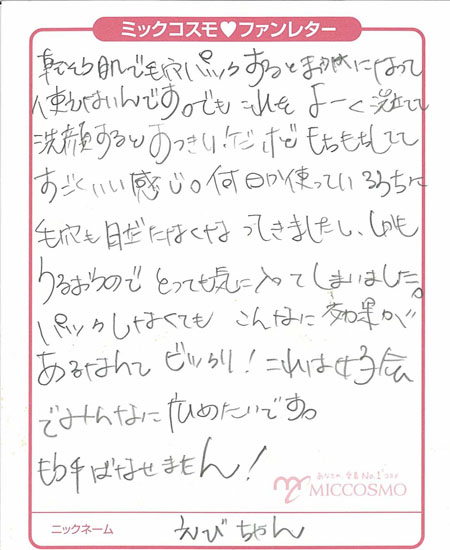 ミックコスモ♥ファンレター
乾そう肌で毛穴パックするとまっ赤になって
使えないんです。でもこれをよーく泡立てて
洗顔するとすっきり！だけどもちもちしてて
すごくいい感じ。何日か使っているうちに
毛穴も目だたなくなってきましたし、しかも
うるおうのでとっても気に入ってしまいました。
パックしなくてもこんなに効果が
あるなんてビックリ！これは女子会
でみんなに広めたいです。
もう手ばなせません！
あなたの、全品No.1コスメ
MICCOSMO
ニックネーム えびちゃん